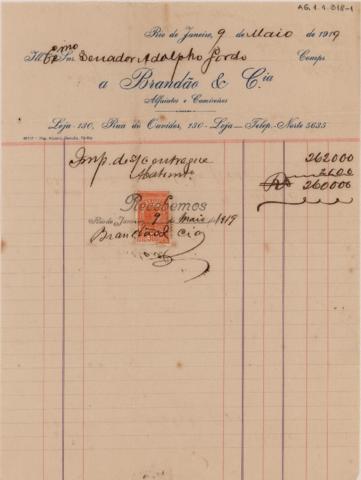 AG.1.4.318-1
Rio de Janeiro, 9 de Maio de 1919
Ill. Exmo Snr. Senador Adolpho Gordo Comps
a Brandão & C.ia
Alfaiates e Camiseiros
Loja-130, Rua do Ouvidor, 130-Loja — Telep.-Norte 5635
Imp. de s/ Contrague 262000
Abatimto 2000
Rs 260000
Recebemos
Rio de Janeiro 9 de Maio 1919
Brandão & Cia